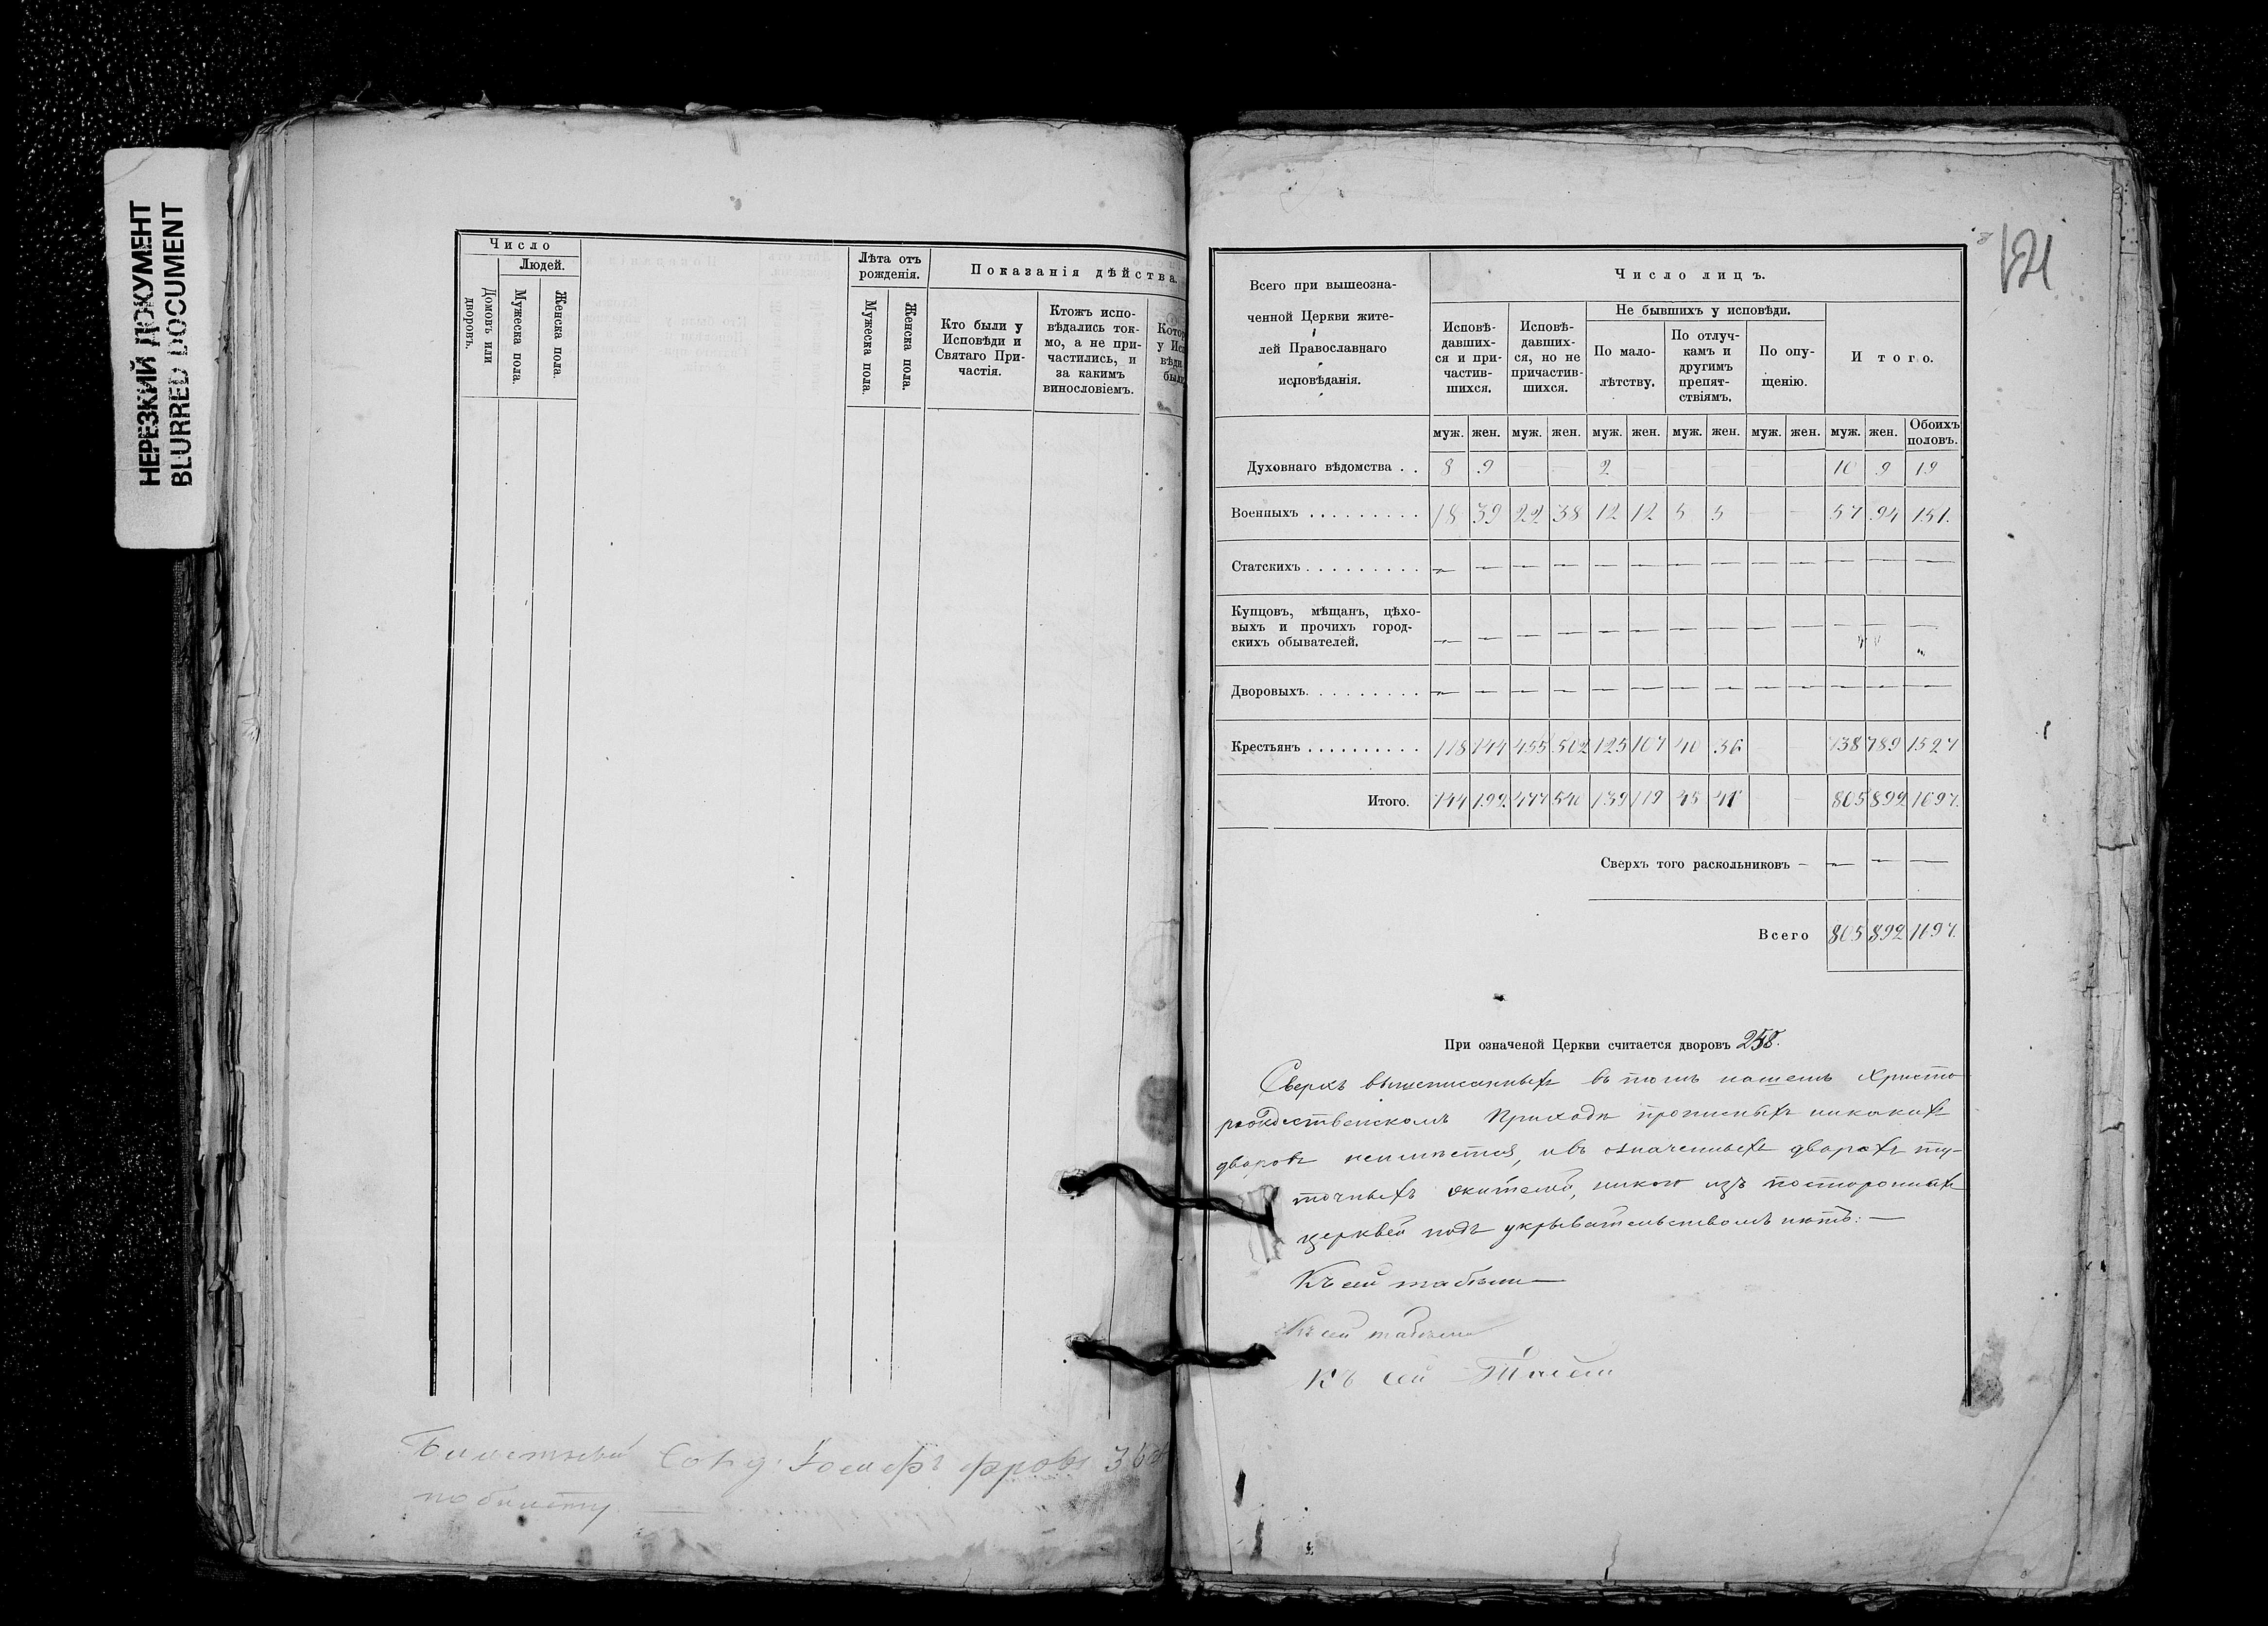 НЕРЕЗКИЙ ДОКУМЕНТ
BLURRED DOCUMENT
Число
Людей.
Домовъ или дворовъ.
Мужеска пола.
Женска пола.
Лѣта отъ рожденія.
Мужеска пола.
Женска пола.
Показанія дѣйства.
Кто были у
Исповѣди и
Святаго При-
частія.
Ктожъ испо-
вѣдались ток-
мо, а не при-
частились, и
за какимъ
винословіемъ.
по билету
121
Всего при вышеозна-
ченной Церкви жите-
лей Православнаго
исповѣданія.
Число лицъ.
Исповѣ-
давших-
ся и при-
частив-
шихся.
Исповѣ-
давших-
ся, но не
причастив-
шихся.
Не бывшихъ у исповѣди.
По мало-
лѣтству.
По отлуч-
камъ и
другимъ
препят-
ствіямъ.
По опу-
щенію.
Итого.
муж. жен. муж. жен. муж. жен. муж. жен. муж. жен. муж. жен. Обоихъ половъ.
Духовнаго вѣдомства . . 8 9 — — 2 — — — — — 10 9 19
Военныхъ . . . . . . . . . 18 39 22 38 12 12 5 5 — — 57 94 151.
Статскихъ . . . . . . . . . — — — — — — — — — — — — —
Купцовъ, мѣщанъ, цѣхо-
выхъ и прочихъ город-
скихъ обывателей. — — — — — — — — — — — — —
Дворовыхъ. . . . . . . . . — — — — — — — — — — — — —
Крестьянъ . . . . . . . . . 118 144 455 502 125 107 40 36 — — 738 789 1527
Итого. 144 192 477 540 139 119 45 41 — — 805 892 1697.
Сверхъ того раскольниковъ — — — —
Всего 805 892 1697.
При означеной Церкви считается дворовъ 258.
Сверхъ вышеписанныхъ въ томъ нашемъ Христо
рождественскомъ Приходѣ прописныхъ никакихъ
дворовъ неимѣется, и въ означенныхъ дворахъ ту-
точныхъ жителей, никого изъ постороннихъ
церквей подъ укрывательствомъ нѣтъ: —
Къ сей табели
Къ сей табели
Къ сей